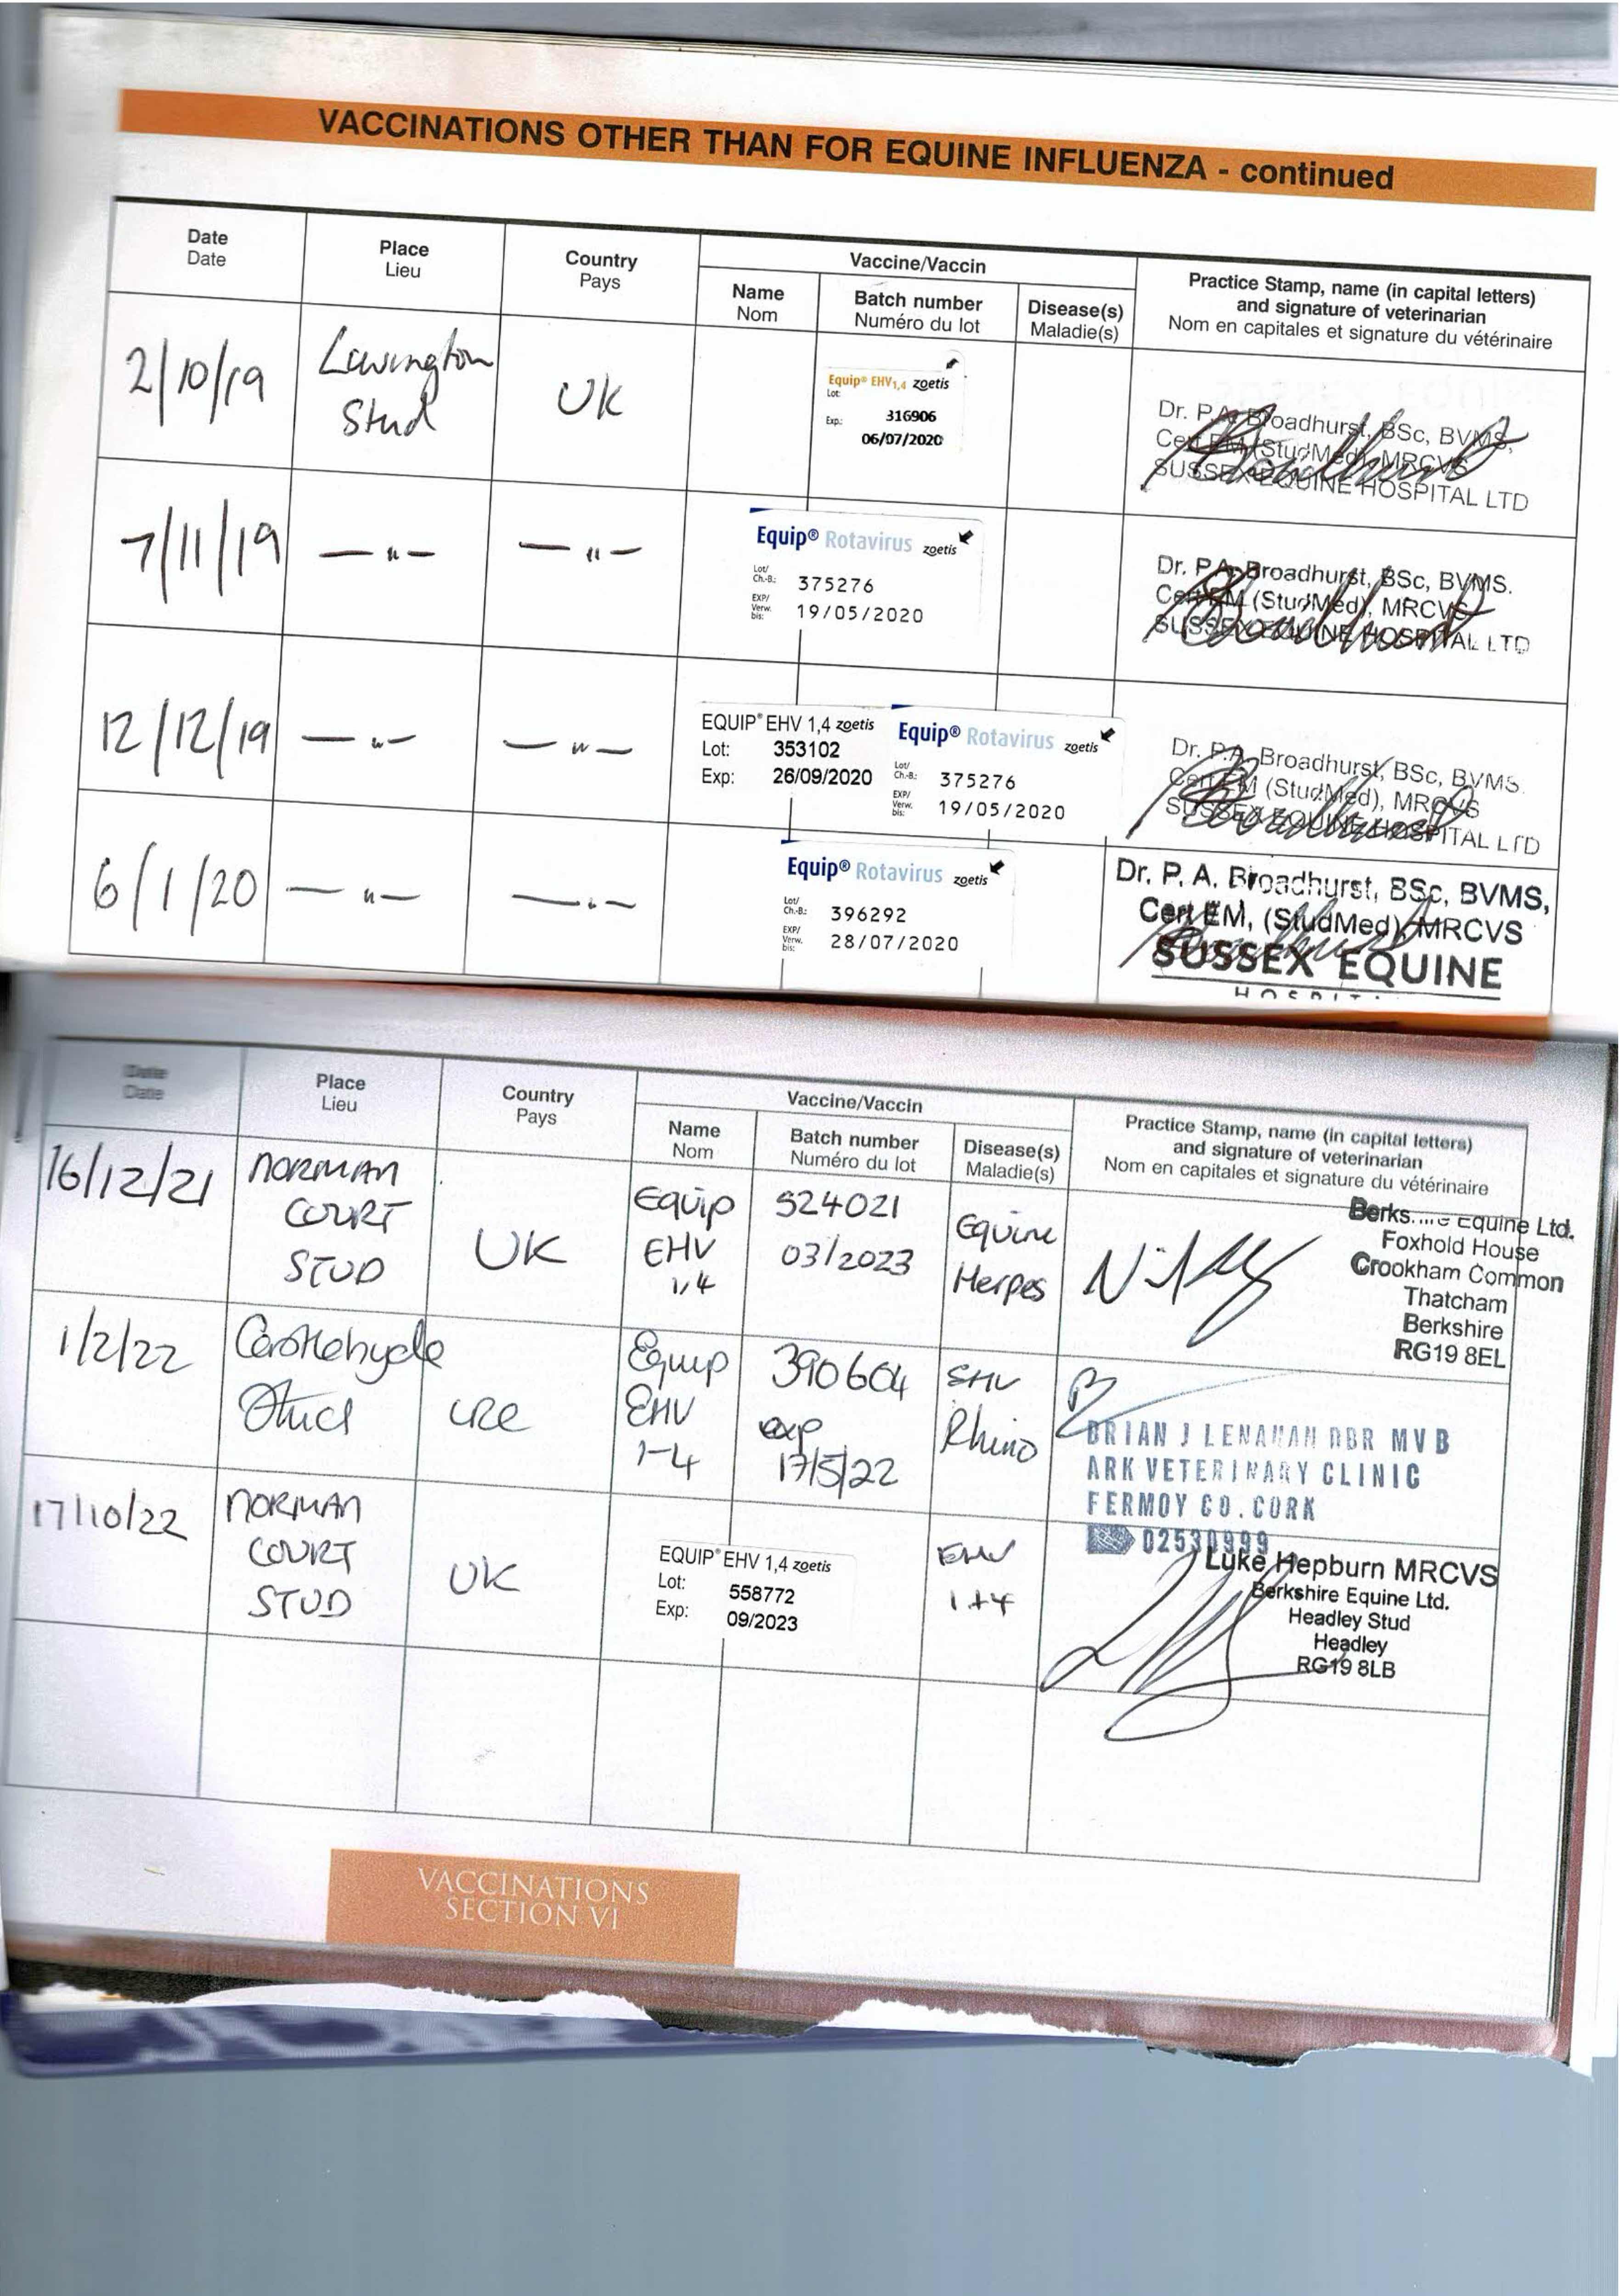 VACCINATIONS OTHER THAN FOR EQUINE INFLUENZA - continued
Date
Date
Place
Lieu
Country
Pays
Vaccine/Vaccin
Name
Nom
Batch number
Numéro du lot
Disease(s)
Maladie(s)
Practice Stamp, name (in capital letters)
and signature of veterinarian
Nom en capitales et signature du vétérinaire
2/10/19
Lavington
Stud
UK
Equip® EHV1,4 zoetis
Lot:
316906
Exp.:
06/07/2020
Dr. P.A. Broadhurst, BSc, BVMS,
Cert EM (StudMed), MRCVS
SUSSEX EQUINE HOSPITAL LTD
7/11/19
— " —
— " —
Equip® Rotavirus zoetis
Lot/
Ch.-B.: 375276
EXP/
Verw.
bis: 19/05/2020
Dr. P.A. Broadhurst, BSc, BVMS.
Cert EM (StudMed), MRCVS
SUSSEX EQUINE HOSPITAL LTD
12/12/19
— " —
— " —
EQUIP® EHV 1,4 zoetis
Lot: 353102
Exp: 26/09/2020
Equip® Rotavirus zoetis
Lot/
Ch.-B.: 375276
EXP/
Verw.
bis: 19/05/2020
Dr. P.A. Broadhurst, BSc, BVMS.
Cert EM (StudMed), MRCVS
SUSSEX EQUINE HOSPITAL LTD
6/1/20
— " —
— " —
Equip® Rotavirus zoetis
Lot/
Ch.-B.: 396292
EXP/
Verw.
bis: 28/07/2020
Dr. P. A. Broadhurst, BSc, BVMS,
Cert EM, (StudMed), MRCVS
SUSSEX EQUINE
Date
Date
Place
Lieu
Country
Pays
Vaccine/Vaccin
Name
Nom
Batch number
Numéro du lot
Disease(s)
Maladie(s)
Practice Stamp, name (in capital letters)
and signature of veterinarian
Nom en capitales et signature du vétérinaire
16/12/21
NORMAN
COURT
STUD
UK
Equip
EHV
1,4
524021
03/2023
Equine
Herpes
Equine Ltd.
Foxhold House
Crookham Common
Thatcham
Berkshire
RG19 8EL
1/2/22
Castlehyde
Stud
IRE
Equip
EHV
1-4
390604
exp
17/5/22
Rhino
BRIAN J LENAHAN DBR MVB
ARK VETERINARY CLINIC
FERMOY CO. CORK
02530999
17/10/22
NORMAN
COURT
STUD
UK
EQUIP® EHV 1,4 zoetis
Lot: 558772
Exp: 09/2023
EHV
1+4
Luke Hepburn MRCVS
Berkshire Equine Ltd.
Headley Stud
Headley
RG19 8LB
VACCINATIONS
SECTION VI